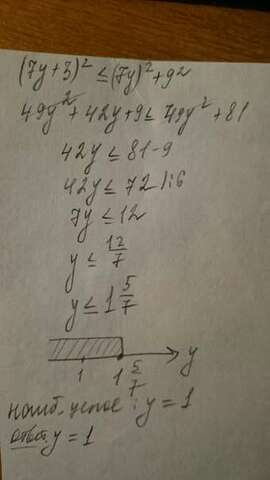 (7y+3)² ≤ (7y)²+9²
49y²+42y+9 ≤ 49y²+81
42y ≤ 81-9
42y ≤ 72 |:6
7y ≤ 12
y ≤ 12/7
y ≤ 1 5/7
1 1 5/7 y
: y = 1
ответ. y = 1